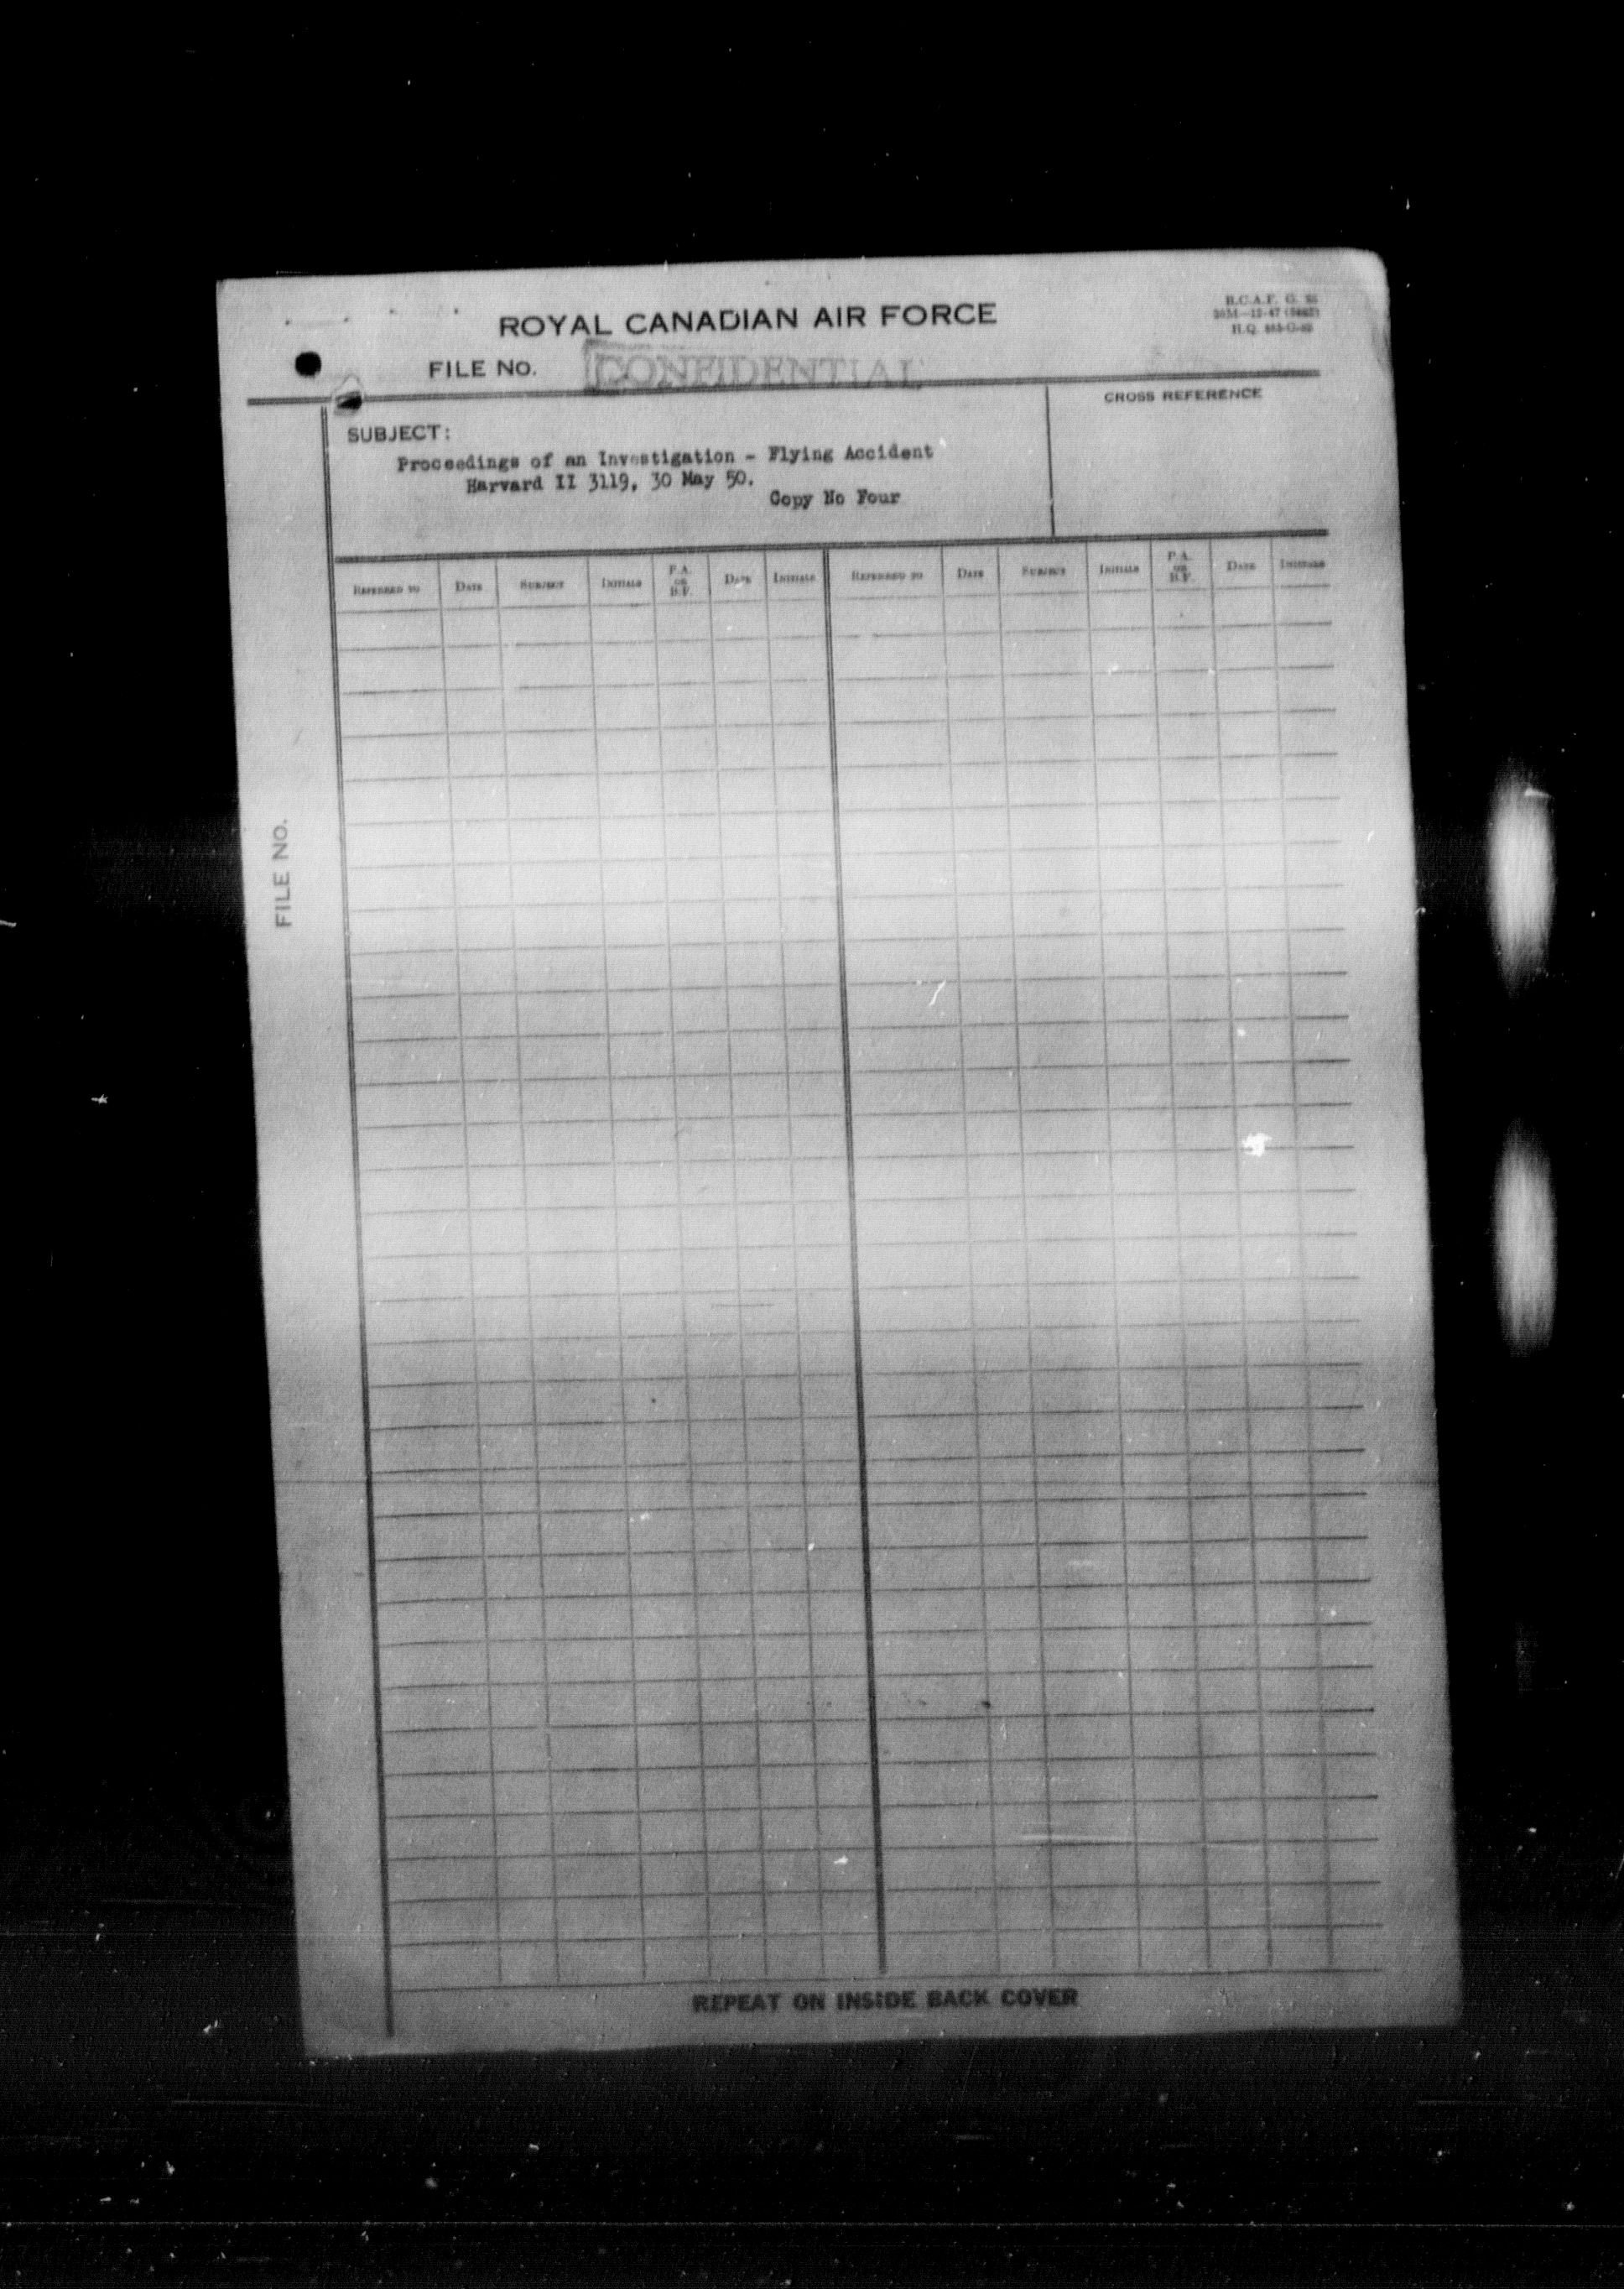 ROYAL CANADIAN AIR FORCE
R.C.A.F. G.
H.Q.
FILE No. CONFIDENTIAL
CROSS REFERENCE
SUBJECT:
Proceedings of an Investigation - Flying Accident
Harvard II 3119, 30 May 50.
Copy No Four
REFERRED TO DATE SUBJECT INITIALS P.A. OR B.F. DATE INITIALS REFERRED TO DATE SUBJECT INITIALS P.A. OR B.F. DATE INITIALS
FILE NO.
REPEAT ON INSIDE BACK COVER